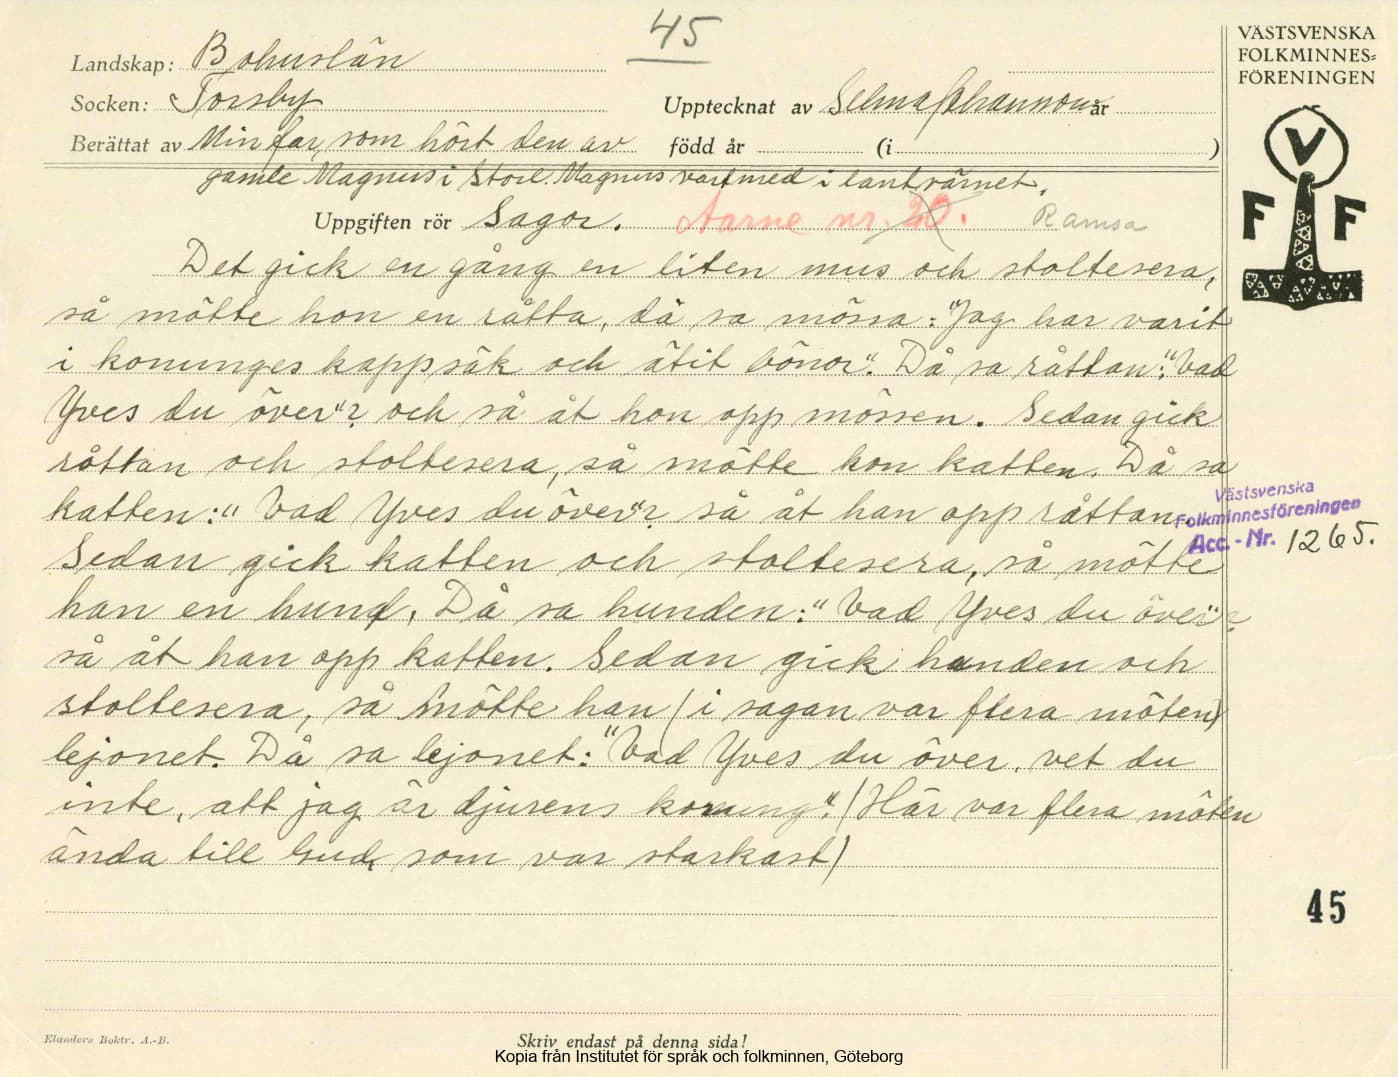 45
VÄSTSVENSKA
FOLKMINNES=
FÖRENINGEN
V
F F
Landskap: Bohuslän
Socken: Torsby
Upptecknat av Selma Johansson år
Berättat av Min far, som hört den av
född år (i )
gamle Magnus i Stoel. Magnus vart med i lantvärnet.
Uppgiften rör Sagor. Aarne nr. 20. Ramsa
Det gick en gång en liten mus och stoltesera,
så mötte hon en råtta, då sa mössa: "Jag har varit
i konunges kappsäk och ätit bönor". Då sa råttan: "Vad
Yves du över"? och så åt hon opp mössen. Sedan gick
råttan och stoltesera, så mötte hon katten. Då sa
katten: "Vad Yves du över"? så åt han opp råttan.
Sedan gick katten och stoltesera, så mötte
han en hund, Då sa hunden: "Vad Yves du över"?
så åt han opp katten. Sedan gick hunden och
stoltesera, så mötte han (i sagan var flera möten)
lejonet. Då sa lejonet: "Vad Yves du över, vet du
inte, att jag är djurens konung". (Här var flera möten
ända till Gud, som var starkast)
Västsvenska
Folkminnesföreningen
Acc.-Nr. 1265.
45
Elanders Boktr. A.-B.
Skriv endast på denna sida!
Kopia från Institutet för språk och folkminnen, Göteborg